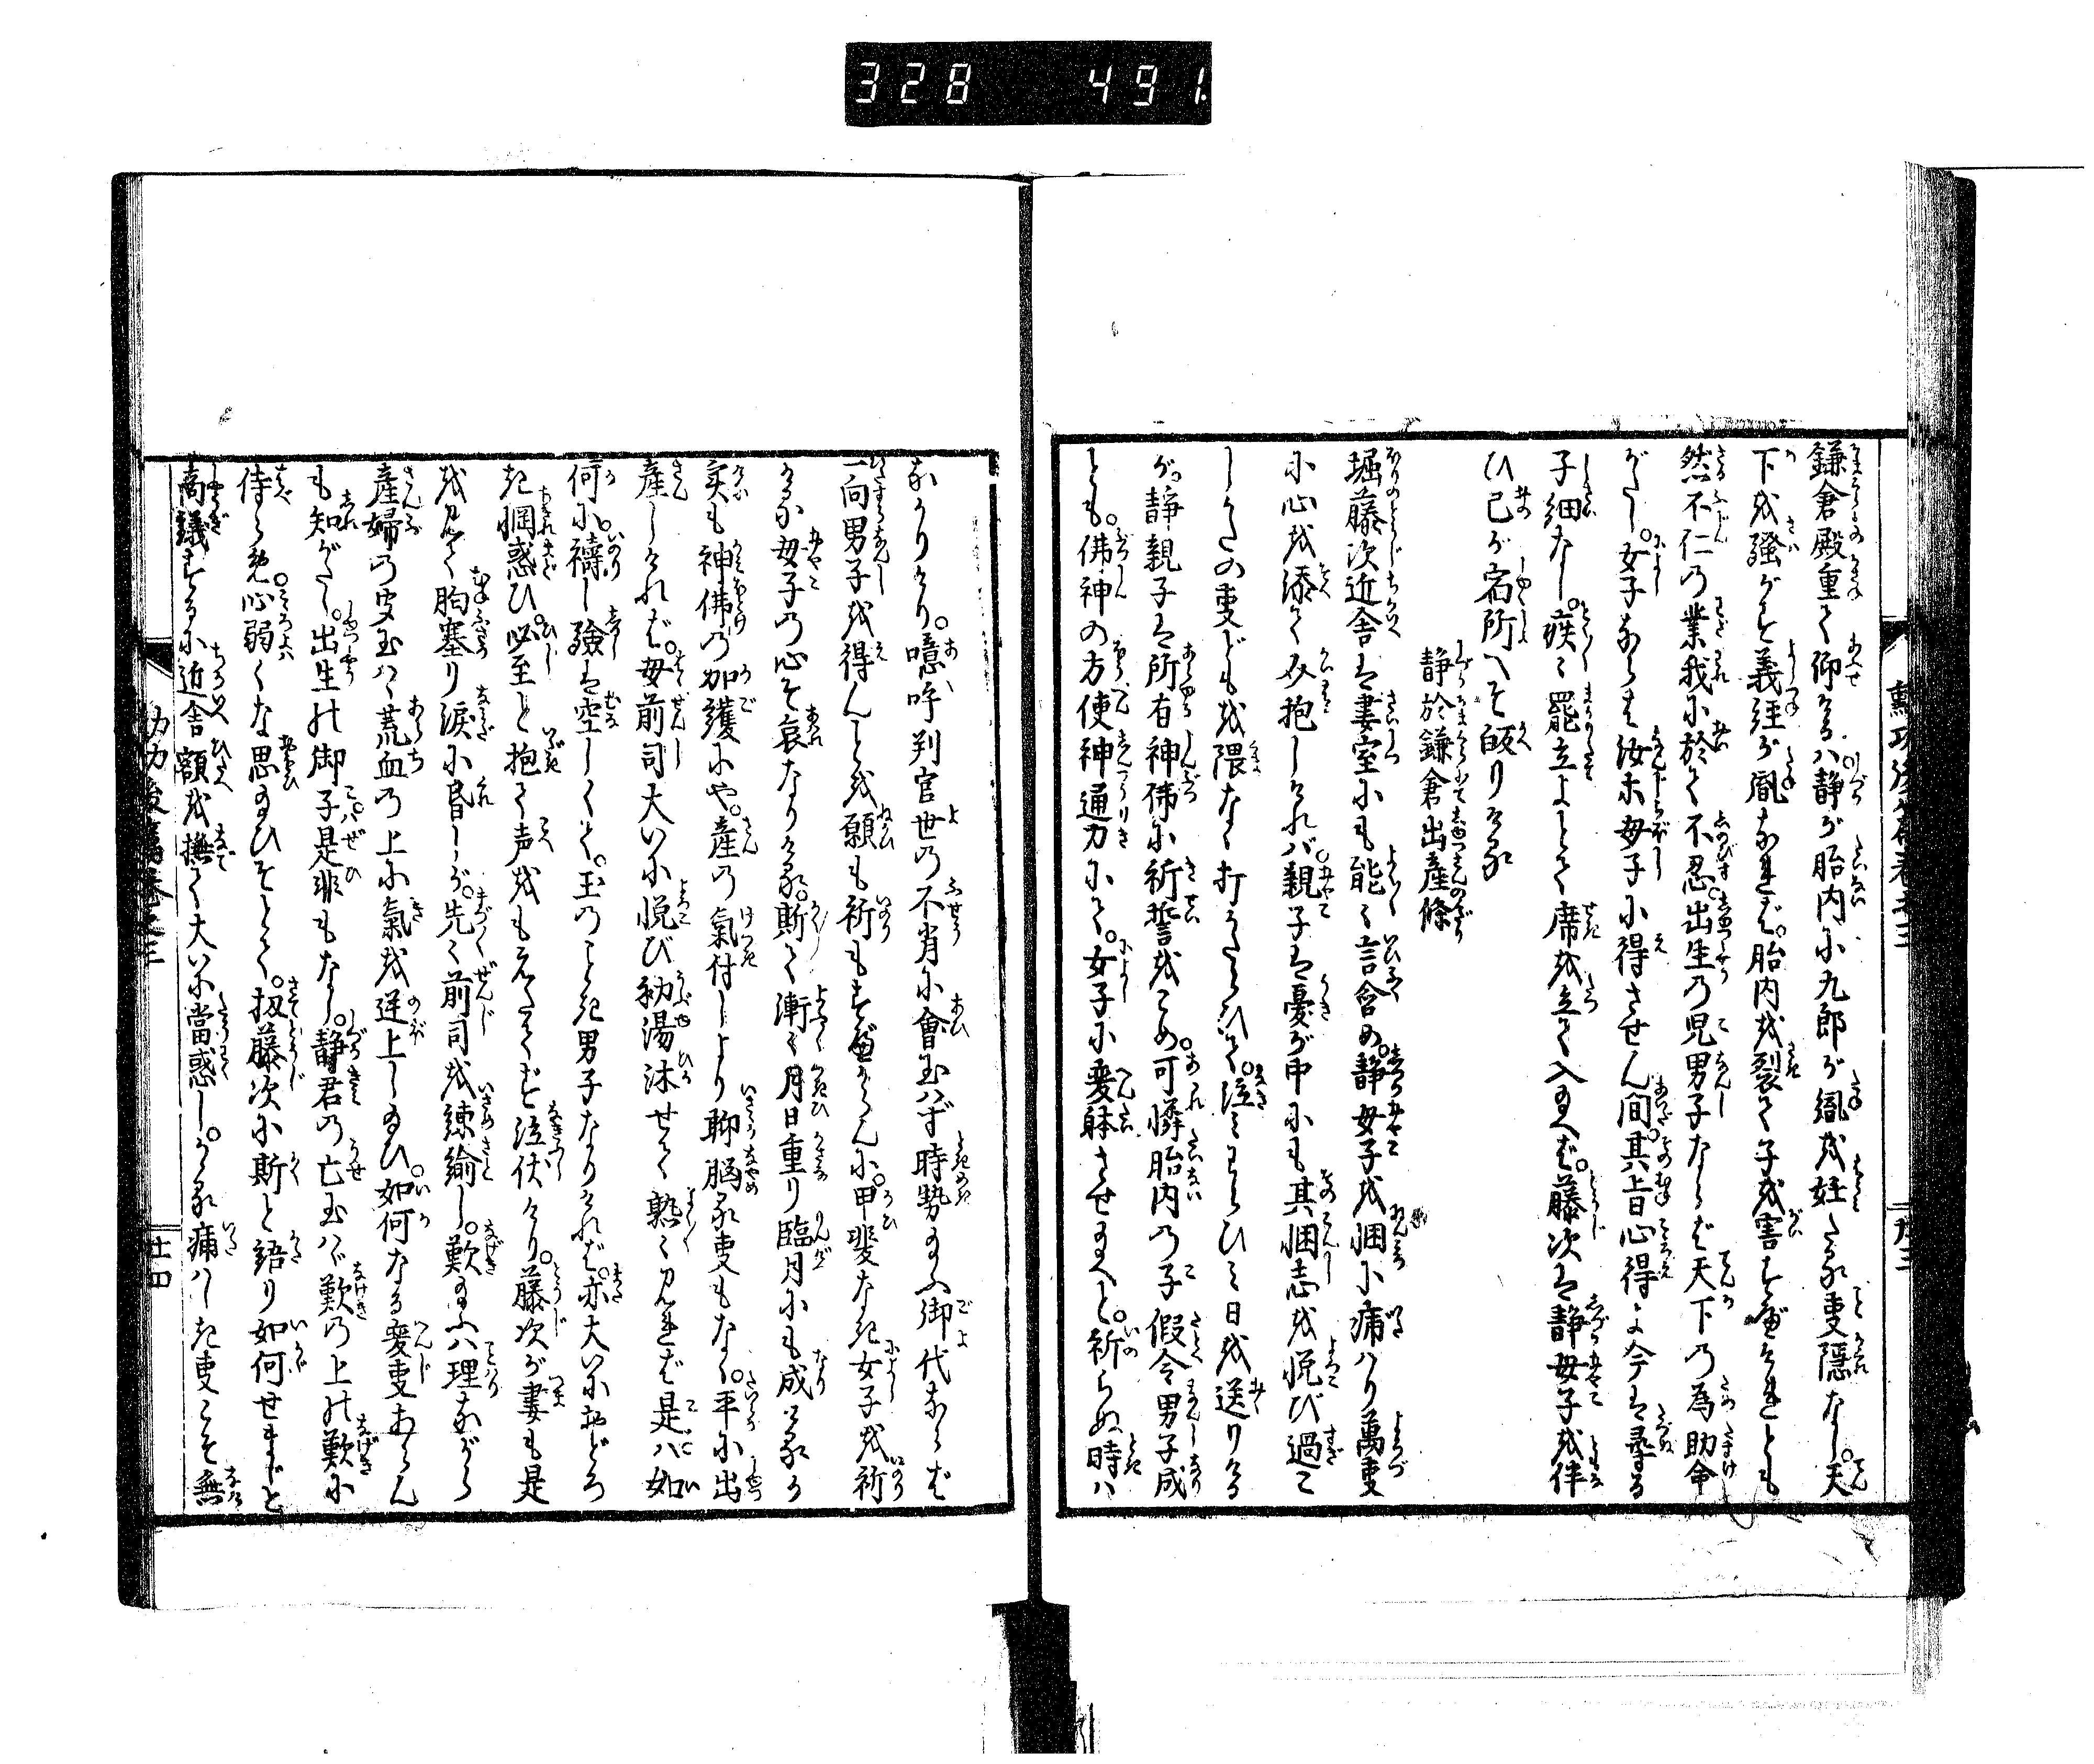 328 491
鎌倉殿重て仰けるハ静が胎内に九郎が胤を妊たる事隠なし。天
下を騒がす義経が胤なれば。胎内を裂て子を害すべけれとも
然不仁の業我に於て不忍。出生の児男子ならば天下の為助命
がたし。女子ならは汝等母子に得させん間。其旨心得よ今は尋る
子細なし。疾〻罷立よとて席を立て入玉へば。藤次は静母子を伴
ひ己が宿所へそ皈りける
静於鎌倉出産條
堀藤次近舎は妻室にも能〻言含め。静母子を悃に痛ハり萬事
に心を添て介抱しけれバ。親子は憂が中にも其悃志を悦び過こ
しかたの事ども を隈なく打かたらひて。泣みわらひみ日を送りける
が静親子は所有神佛に祈誓をこめ。可憐胎内の子假令男子成
とも。佛神の方便神通力にて。女子に変躰させ玉へと。祈らぬ時ハ
なかりけり。噫呼判官世の不肖に會玉ハず時勢玉ふ御代ならば
一向男子を得んとを願も祈もすべからんに。甲斐なき女子を祈
るか母子の心そ哀なりける。斯て漸〻月日重り臨月にも成けるか
実も神佛の加護にや。産の氣付しより聊脳る事もなく。平に出
産しければ。母前司大いに悦び初湯沐せて熟〻見れば是ハ如
何に。禱し験は空しくて。玉のことき男子なりければ。亦大いにおどろ
き惘惑ひ。必至と抱て声をもえたてず泣伏けり。藤次が妻も是
を見て胸塞り涙に昏しが。先〻前司を練諭し。歎玉ふハ理ながら
産婦の皮玉ハく荒血の上に氣を逆上し玉ひ。如何なる変事あらん
も知がたし。出生の御子是非もなし。静君の亡玉ハヾ歎の上の歎に
侍らめ。心弱くな思玉ひそとて。扨藤次に斯と語り如何せまじと
商議するに近舎額を撫て大いに當惑し。かゝる痛ハしき事こそ無
勲功後篇巻之三
廿三
廿四